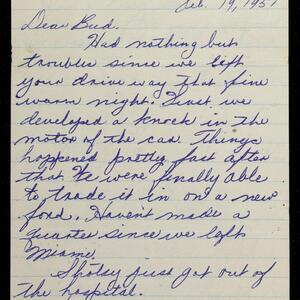 Feb. 19, 1957
Dear Bud.
Had nothing but
troubles since we left
your drive way that fine
warm night. First we
developed a knock in the
motor of the car. Things
happened pretty fast after
that We were finally able
to trade it in on a new
ford. Haven't made a
quarter since we left
Miami.
Shotsy just got out of
the hospital.